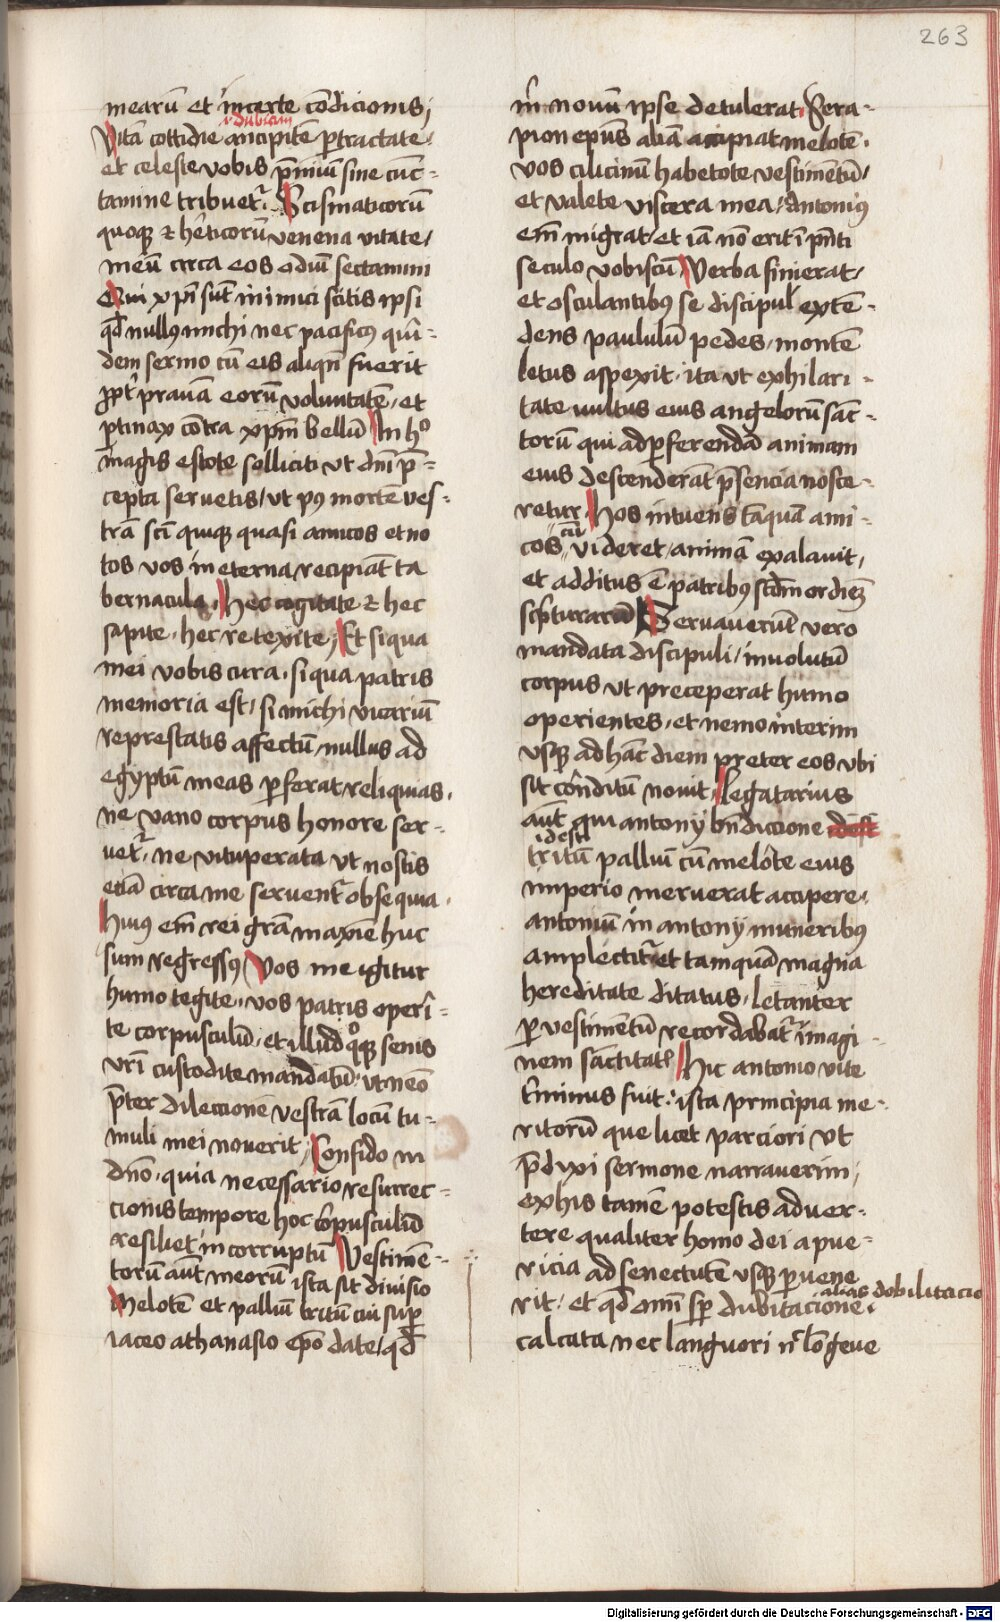 263
mearū et incerte cōdicionis;
i dubiam
Vitā cottidie ancipitē ꝑtractate.
et celeste vobis p̄miū sine cunc-
tamine tribuetᷣ. Scismaticorū
quoqꝫ ⁊ hēticorū venena vitate/
meū circa eos odiū sectamini
Qui xp̄i sūt inimici scitis ipsi
qd̄ nullꝰ michi nec pacificꝰ qui-
dem sermo cū eis aliqn̄ fuerit
ꝓpt̄ prauā eorū voluntatē, et
ꝑtinax cōtra xpm̄ bellū In hͦ
magis estote solliciti vt dn̄i p̄-
cepta seruetis/ vt pꝰ mortē ves-
trā sc̄i quiqꝫ quasi amicos et no
tos vos in eterna recipiāt ta
bernacula. Hec cogitate ⁊ hec
sapite, hec retexite; Et si qua
mei vobis cura, si qua patris
memoria est, si michi vicariū
represtatis affectū, nullus ad
egyptū meas ꝑferat reliquias.
ne vano corpus honore ser-
uetᷣ, ne vituperata vt nostis
eciā circa me seruentᷣ obsequia.
huius em̄ rei grā maxīe huc
sum regressꝰ Vos me igitur
humo tegite, vos patris operi-
te corpusculū, et illud qͦqꝫ senis
vr̄i custodite mandatū, vt nēo
p̄ter dileccionē vestrā locū tu-
muli mei nouerit; Confido in
dn̄o, quia necessario resurrec-
cionis tempore hoc corpusculū
resiliet incorruptū Vestimē-
torū aūt meorū ista sit diuisio
Melotē et palliū tritū cui suꝑ
iaceo athanasio ep̄o date, qd̄
m̄ nouū ipse detulerat. Sera-
pion ep̄us aliā accipiat melotē.
vos cilicinū habetote vestimētū/
et valete viscera mea, Antoniꝰ
em̄ migrat, et iā nō erit ī p̄nti
seculo vobiscū Verba finierat,
et osculantibꝰ se discipul̄ extē-
dens paululū pedes, mortē
letus aspexit, ita vt exhilari-
tate uultus eius angelorū sāc-
torū qui ad ꝑferendā animam
eius descenderāt p̄sencia nosce-
retur. Hos intuens tāquā ami-
cū
cos videret, animā exalauit,
et additus ē patribꝰ scd̄m ordinē
sc̄pturarū Seruauerūt vero
mandata discipuli, inuolutū
corpus vt preceperat humo
operientes, et nemo interim
vsqꝫ ad hāc diem preter eos vbi
sit cōnditū nouit. Legatarius
aūt qui antonij bn̄diccione
idest
tritū palliū cū melōte eius
imperio meruerat accipere,
antoniū in antonij muneribꝰ
amplectitᷣ et tamquā magna
hereditate ditatus, letanter
ꝑ vestimētū recordabatᷣ imagi-
nem sāctitatꝭ Hic antonio vite
t̄minus fuit: ista principia me-
ritorū que licet parciori vt
p̄dixi sermone narrauerim,
ex his tamē potestis aduer-
tere qualiter homo dei a pue-
ricia ad senectutē vsqꝫ ꝑuene
alias dobilitacio
rit/ et qd̄ om̄i sꝑ dubitacione.
calcata nec languori nͨ lōgeue
Digitalisierung gefördert durch die Deutsche Forschungsgemeinschaft - DFG